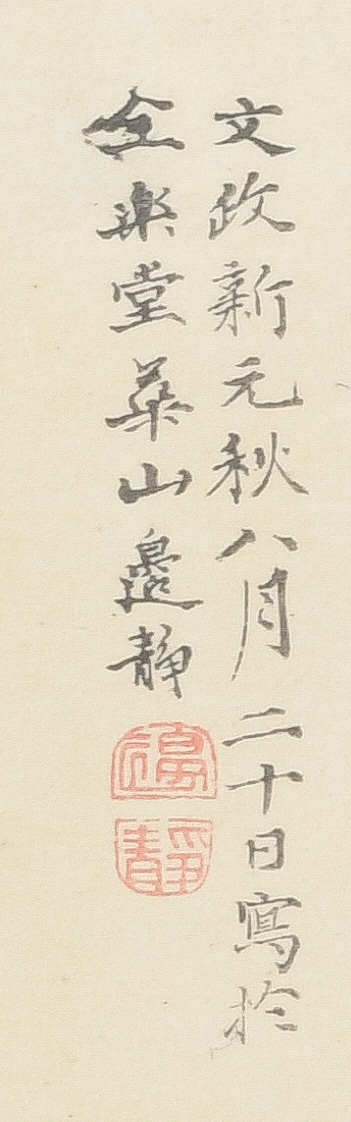 文政新元秋八月二十日寫於
全楽堂華山邉静
邉
静